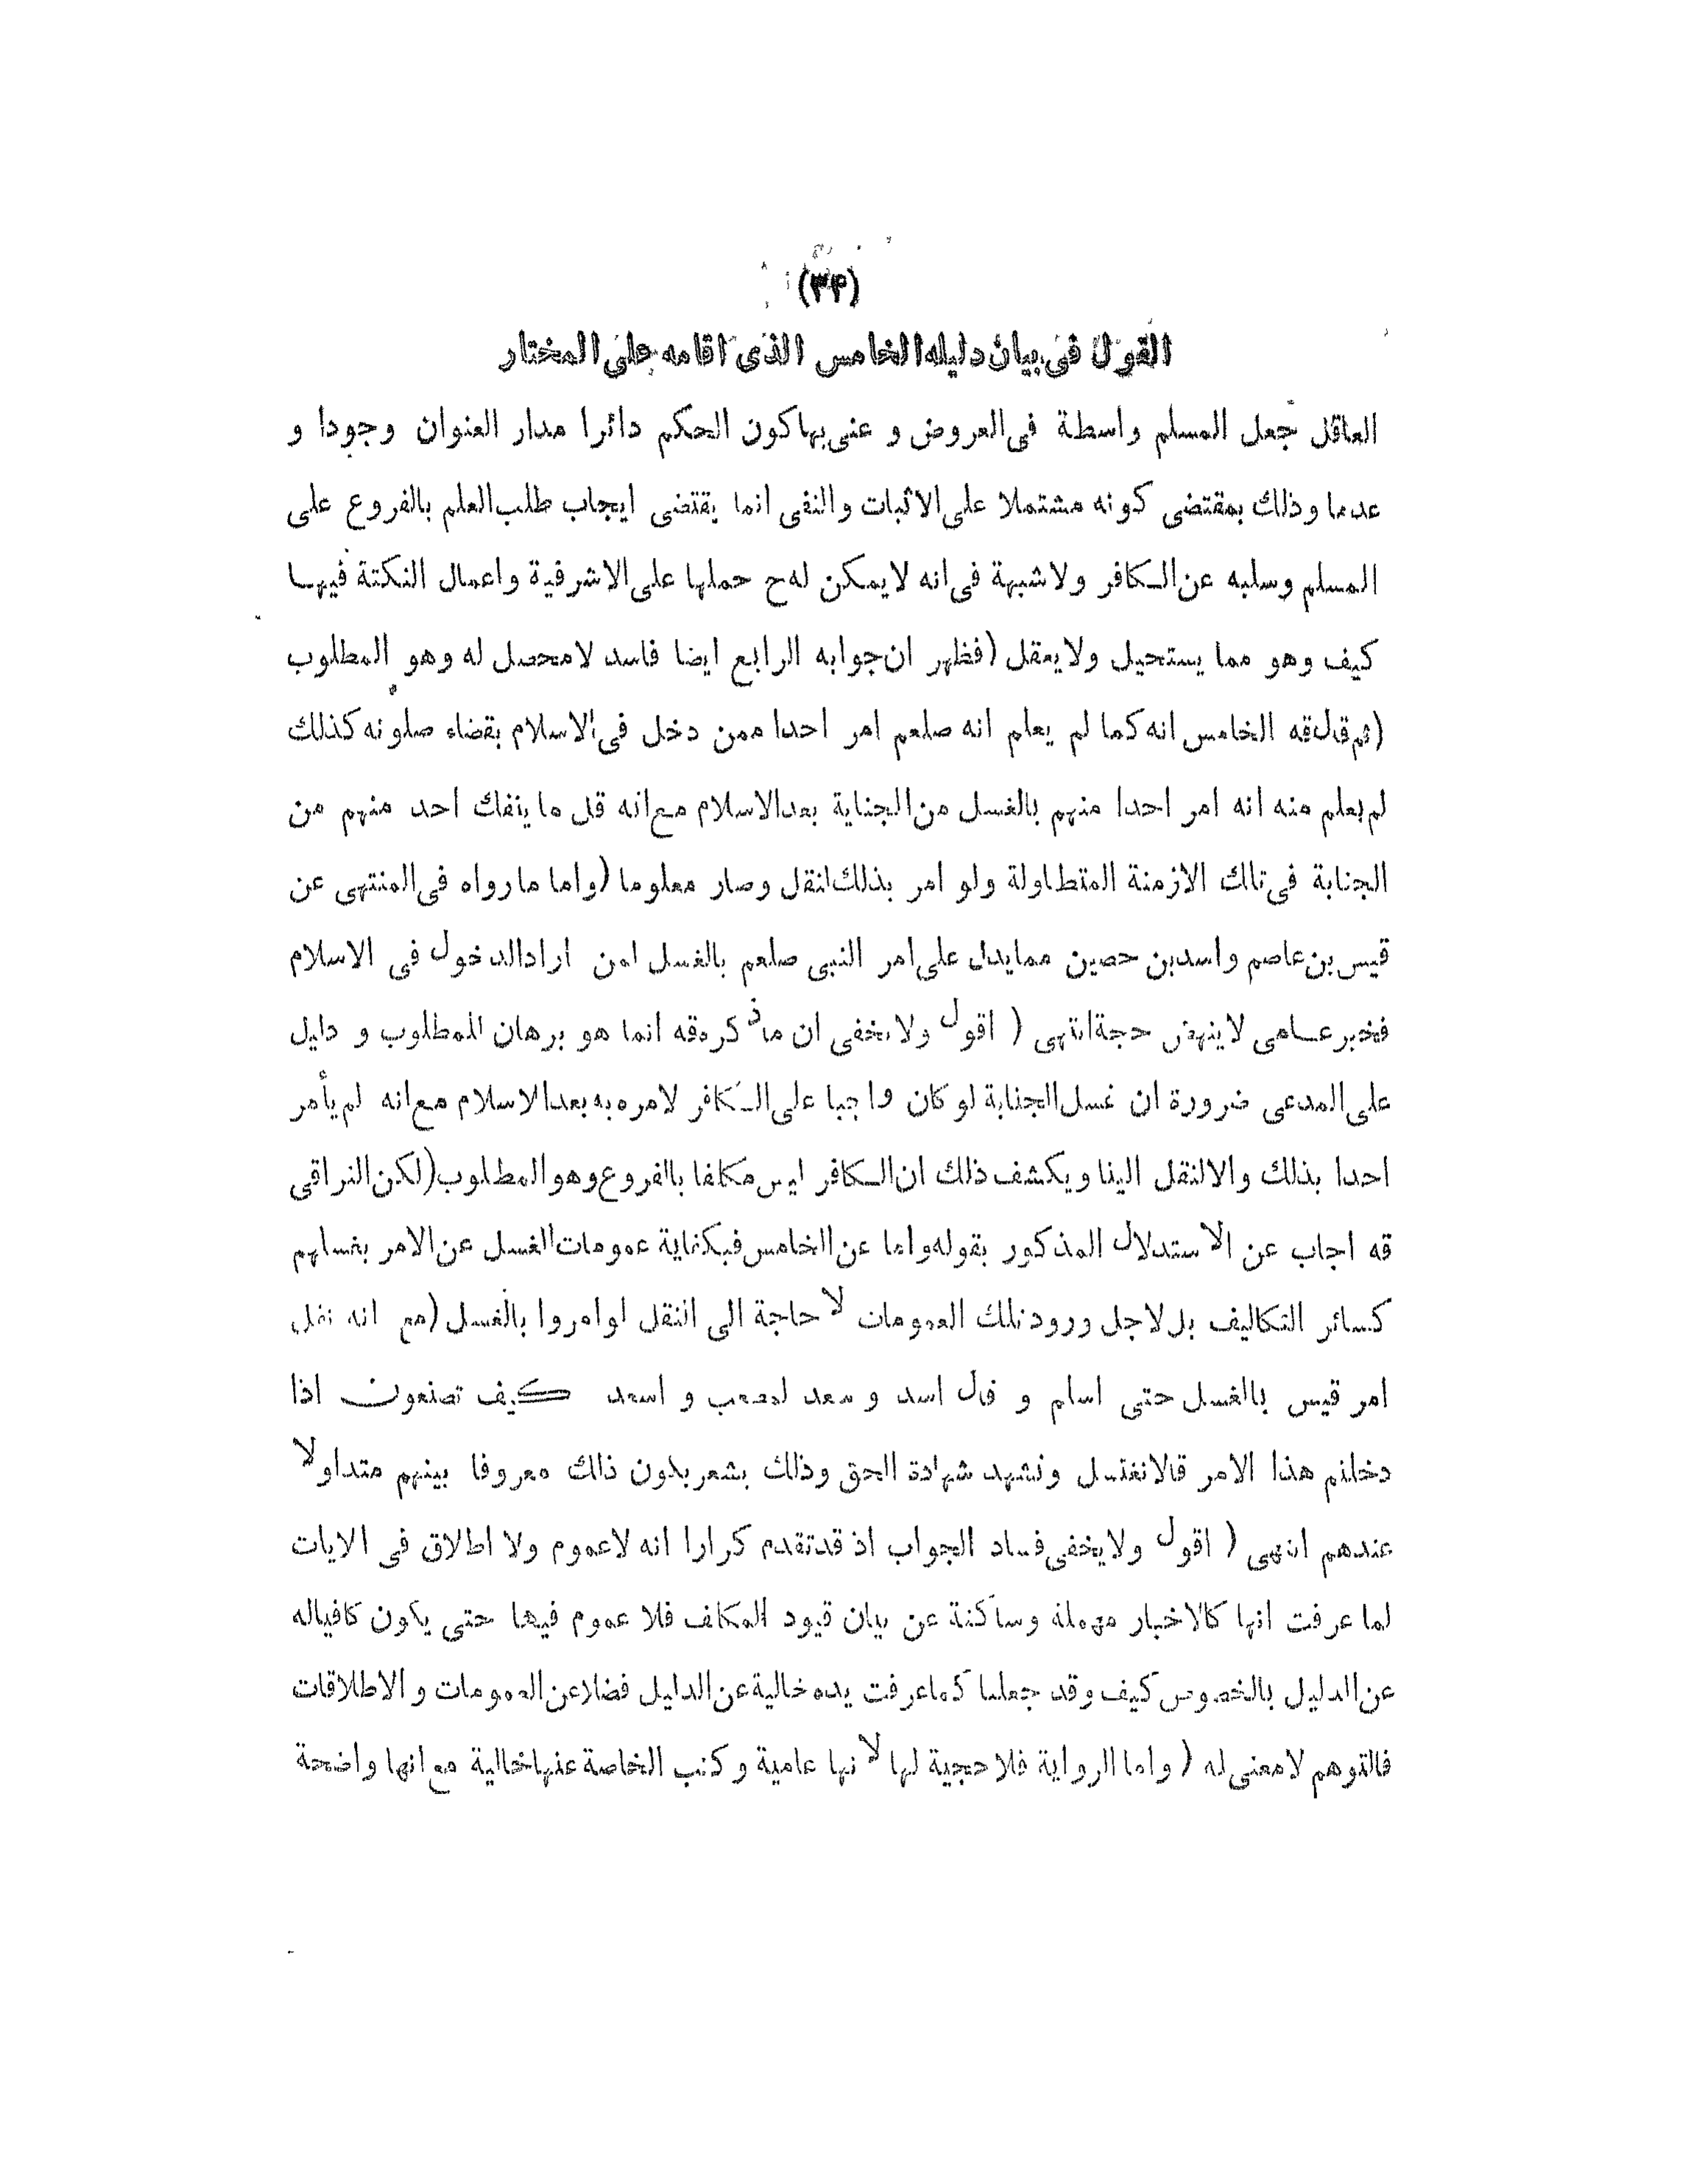 (۳۴)
القول فی بیان دلیله الخامس الذی اقامه علی المختار
العاقل جعل المسلم واسطة فی العروض و عنی بها کون الحکم دائرا مدار العنوان وجودا و
عدما وذلك بمقتضی کونه مشتملا علی الاثبات والنفی انما یقتضی ایجاب طلب العلم بالفروع علی
المسلم وسلبه عن الکافر ولاشبهة فی انه لایمکن له ح حملها علی الاشرفیة واعمال النکتة فیها
کیف وهو مما یستحیل ولایعقل (فظهر ان جوابه الرابع ایضا فاسد لامحصل له وهو المطلوب
(ثم قال قه الخامس انه کما لم یعلم انه صلعم امر احدا ممن دخل فی الاسلام بقضاء صلوته کذلك
لم یعلم منه انه امر احدا منهم بالغسل من الجنابة بعد الاسلام مع انه قل ما ینفك احد منهم من
الجنابة فی تلك الازمنة المتطاولة ولو امر بذلك لنقل وصار معلوما (واما ما رواه فی المنتهی عن
قیس بن عاصم واسد بن حصین مما یدل علی امر النبی صلعم بالغسل لمن اراد الدخول فی الاسلام
فخبر عامی لاینهض حجة انتهی ( اقول ولایخفی ان ماذکره قه انما هو برهان للمطلوب و دلیل
علی المدعی ضرورة ان غسل الجنابة لو کان واجبا علی الکافر لامره به بعد الاسلام مع انه لم یأمر
احدا بذلك والا لنقل الینا ویکشف ذلك ان الکافر لیس مکلفا بالفروع وهو المطلوب (لکن النراقی
قه اجاب عن الاستدلال المذکور بقوله واما عن الخامس فبکفایة عمومات الغسل عن الامر بغسلهم
کسائر التکالیف بل لاجل ورود تلك العمومات لاحاجة الی النقل لو امروا بالغسل (مع انه نقل
امر قیس بالغسل حتی اسلم و قال اسد و سعد لمصعب و اسعد کیف تصنعون اذا
دخلتم هذا الامر قالا نغتسل ونشهد شهادة الحق وذلك یشعر بکون ذلك معروفا بینهم متداولا
عندهم انتهی ( اقول ولایخفی فساد الجواب اذ قد تقدم کرارا انه لاعموم ولا اطلاق فی الایات
لما عرفت انها کالاخبار مهملة وساکتة عن بیان قیود المکلف فلا عموم فیها حتی یکون کافیا له
عن الدلیل بالخصوص کیف وقد جعلنا کما عرفت یده خالیة عن الدلیل فضلا عن العمومات والاطلاقات
فالتوهم لا معنی له ( واما الروایة فلا حجیة لها لانها عامیة وکتب الخاصة عنها خالیة مع انها واضحة